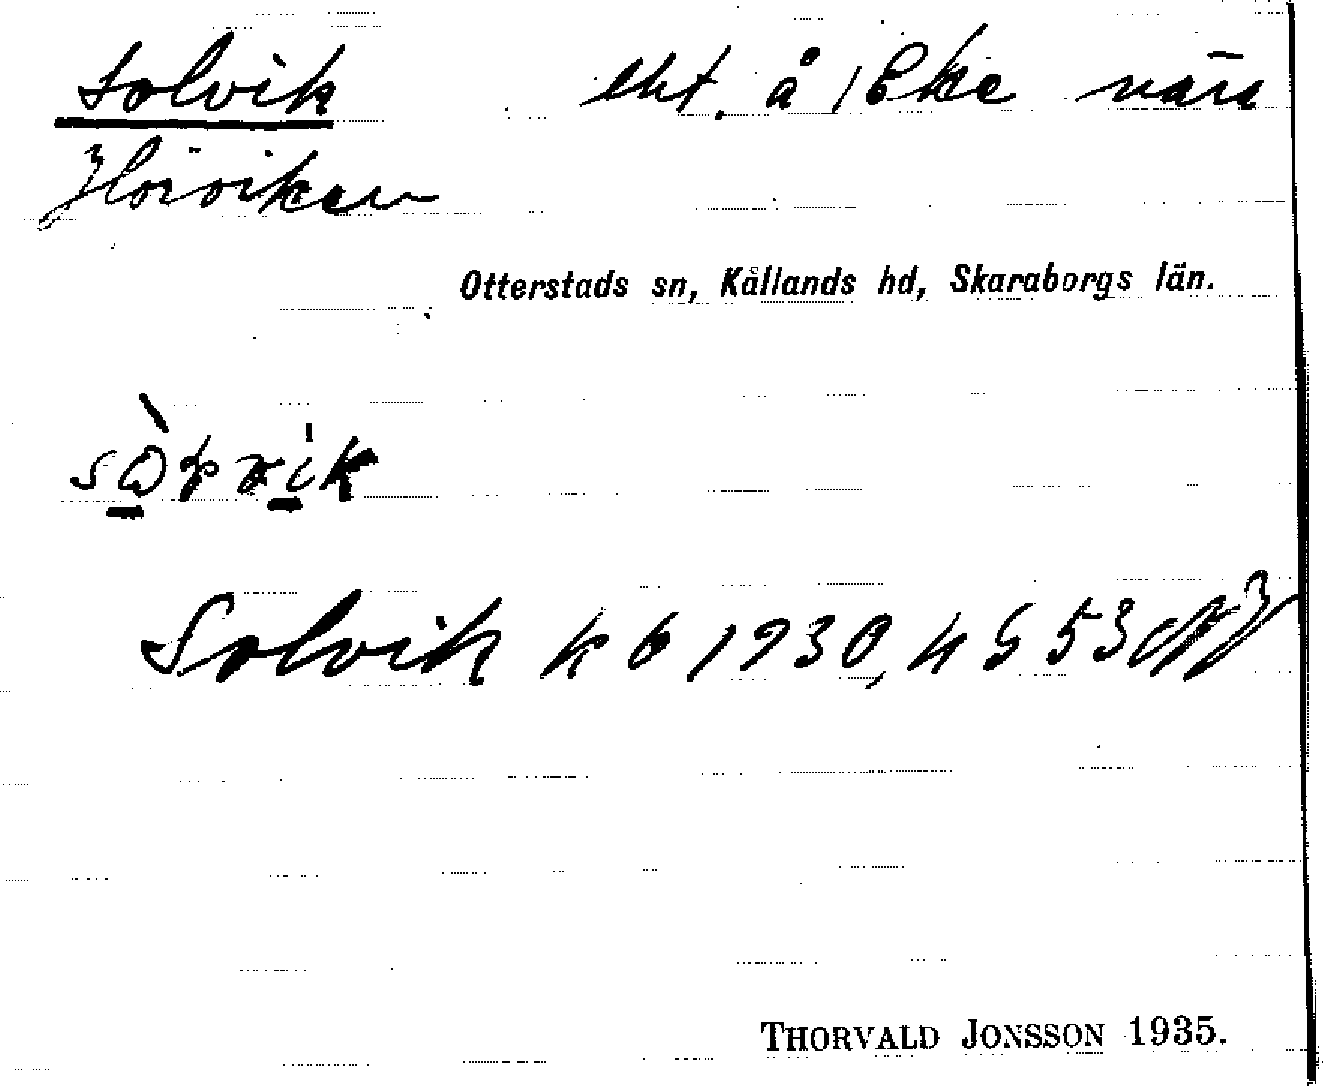 Solvik lht. å 1 Eke nära
Hörviken
Otterstads sn, Kållands hd, Skaraborgs län.
Solvik k b 1930,
THORVALD JONSSON 1935.